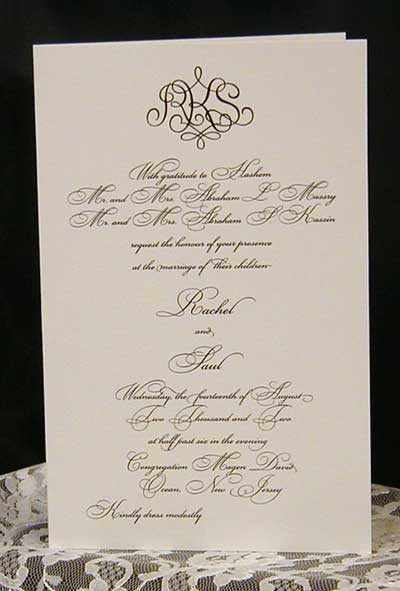 RKS
With gratitude to Hashem
Mr. and Mrs. Abraham L. Massry
Mr. and Mrs. Abraham P. Kassin
request the honour of your presence
at the marriage of their children
Rachel
and
Saul
Wednesday, the fourteenth of August
Two Thousand and Two
at half past six in the evening
Congregation Magen David
Ocean, New Jersey
Kindly dress modestly